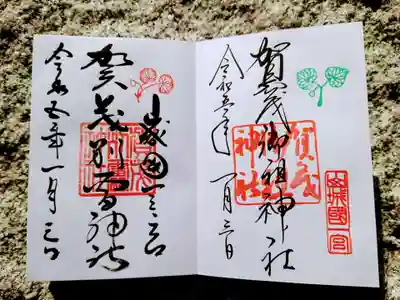 山城國一宮
賀茂御祖神社
賀茂
神社
令和五年一月三日
山城國一之宮
賀茂別雷神社
令和五年一月三日